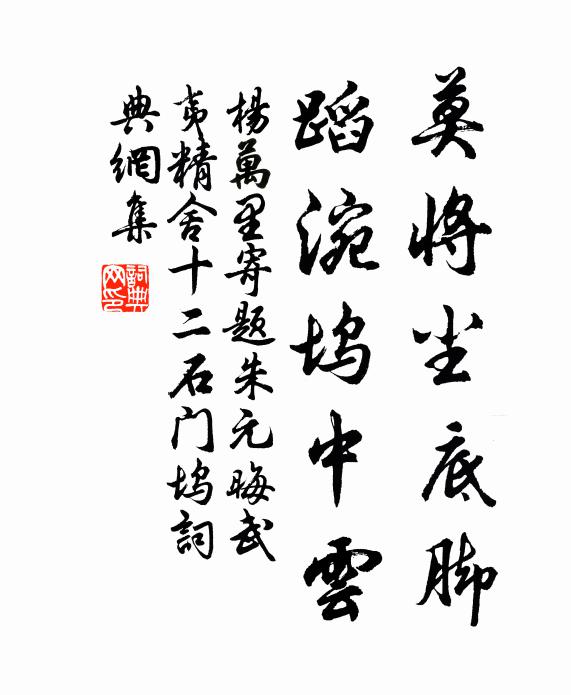 莫将尘底脚
蹈涴坞中雲
楊萬里寄题朱元晦武
夷精舍十二石门坞詞
典網集
詞典
网印